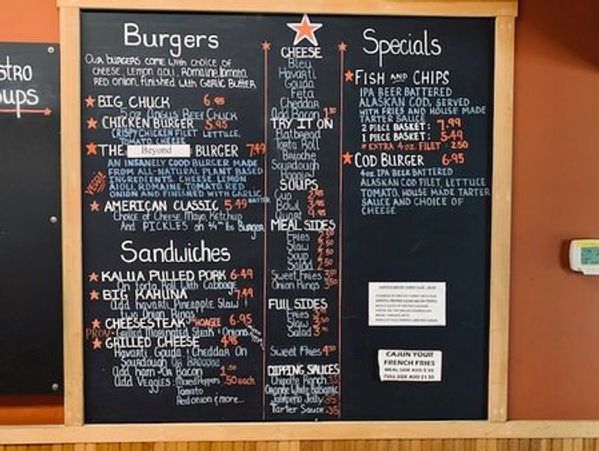 stro
ups
Burgers
Our burgers come with choice of
cheese, lemon aioli, Romaine, tomato,
red onion, finished with Garlic Butter
BIG CHUCK 6.95
5 oz Angus Beef Chuck
CHICKEN BURGER 5.95
CRISPY CHICKEN FILET, LETTUCE,
TOMATO, CHEESE
THE Beyond BURGER 7.49
VEGGIE
AN INSANELY GOOD BURGER MADE
FROM ALL-NATURAL PLANT BASED
INGREDIENTS. CHEESE LEMON
AIOLI, ROMAINE, TOMATO, RED
ONION AND FINISHED WITH GARLIC
BUTTER
AMERICAN CLASSIC 5.49
Choice of Cheese, Mayo, Ketchup
And PICKLES on 1/4 lb Burger
Sandwiches
KALUA PULLED PORK 6.49
On Torta Roll With Cabbage
BIG KAHUNA 7.49
Add Havarti, Pineapple, Slaw &
Two Onion Rings
CHEESESTEAK HOAGIE 6.95
PROV Grilled Marinated Steak & Onions
GRILLED CHEESE 4.95
Havarti, Gouda & Cheddar On
Sourdough
Add ham or Bacon 1.50
Add Veggies: Mixed Peppers .50 each
Tomato
Red onion & more...
CHEESE
Bleu
Havarti
Gouda
Feta
Cheddar
Add Bacon 1.50
TRY IT ON
Flatbread
Torta Roll
Brioche
Sourdough
Hoagie
SOUPS
Cup
Bowl
Quart
MEAL SIDES
Fries
Slaw
Soup
Salad
Sweet Fries
Onion Rings
FULL SIDES
Fries
Slaw
Salad
Sweet Fries 4.50
DIPPING SAUCES
Chipotle Ranch .35
Orange White Balsamic
Jalapeño Jelly .35
Tarter Sauce .35
Specials
FISH AND CHIPS
IPA BEER BATTERED
ALASKAN COD, SERVED
WITH FRIES AND HOUSE MADE
TARTER SAUCE
2 PIECE BASKET: 7.99
1 PIECE BASKET: 5.49
* EXTRA 4oz FILET: 2.50
COD BURGER 6.95
4oz IPA BEER BATTERED
ALASKAN COD FILET, LETTUCE
TOMATO, HOUSE MADE TARTER
SAUCE AND CHOICE OF
CHEESE
CAJUN YOUR
FRENCH FRIES
MEAL SIDE ADD
FULL SIDE ADD $1.50